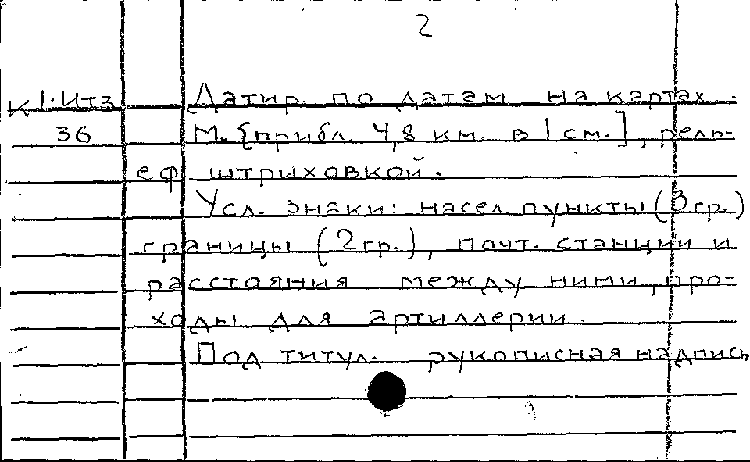 2
К 1:Итз Датир. по датам на картах.
36 М. [прибл. 4,8 км. в 1 см.], рель-
еф штриховкой.
Усл. знаки: насел. пункты (3 гр.)
границы (2 гр.), почт. станции и
расстояния между ними, про-
ходы для артиллерии.
Под титул. рукописная надпись